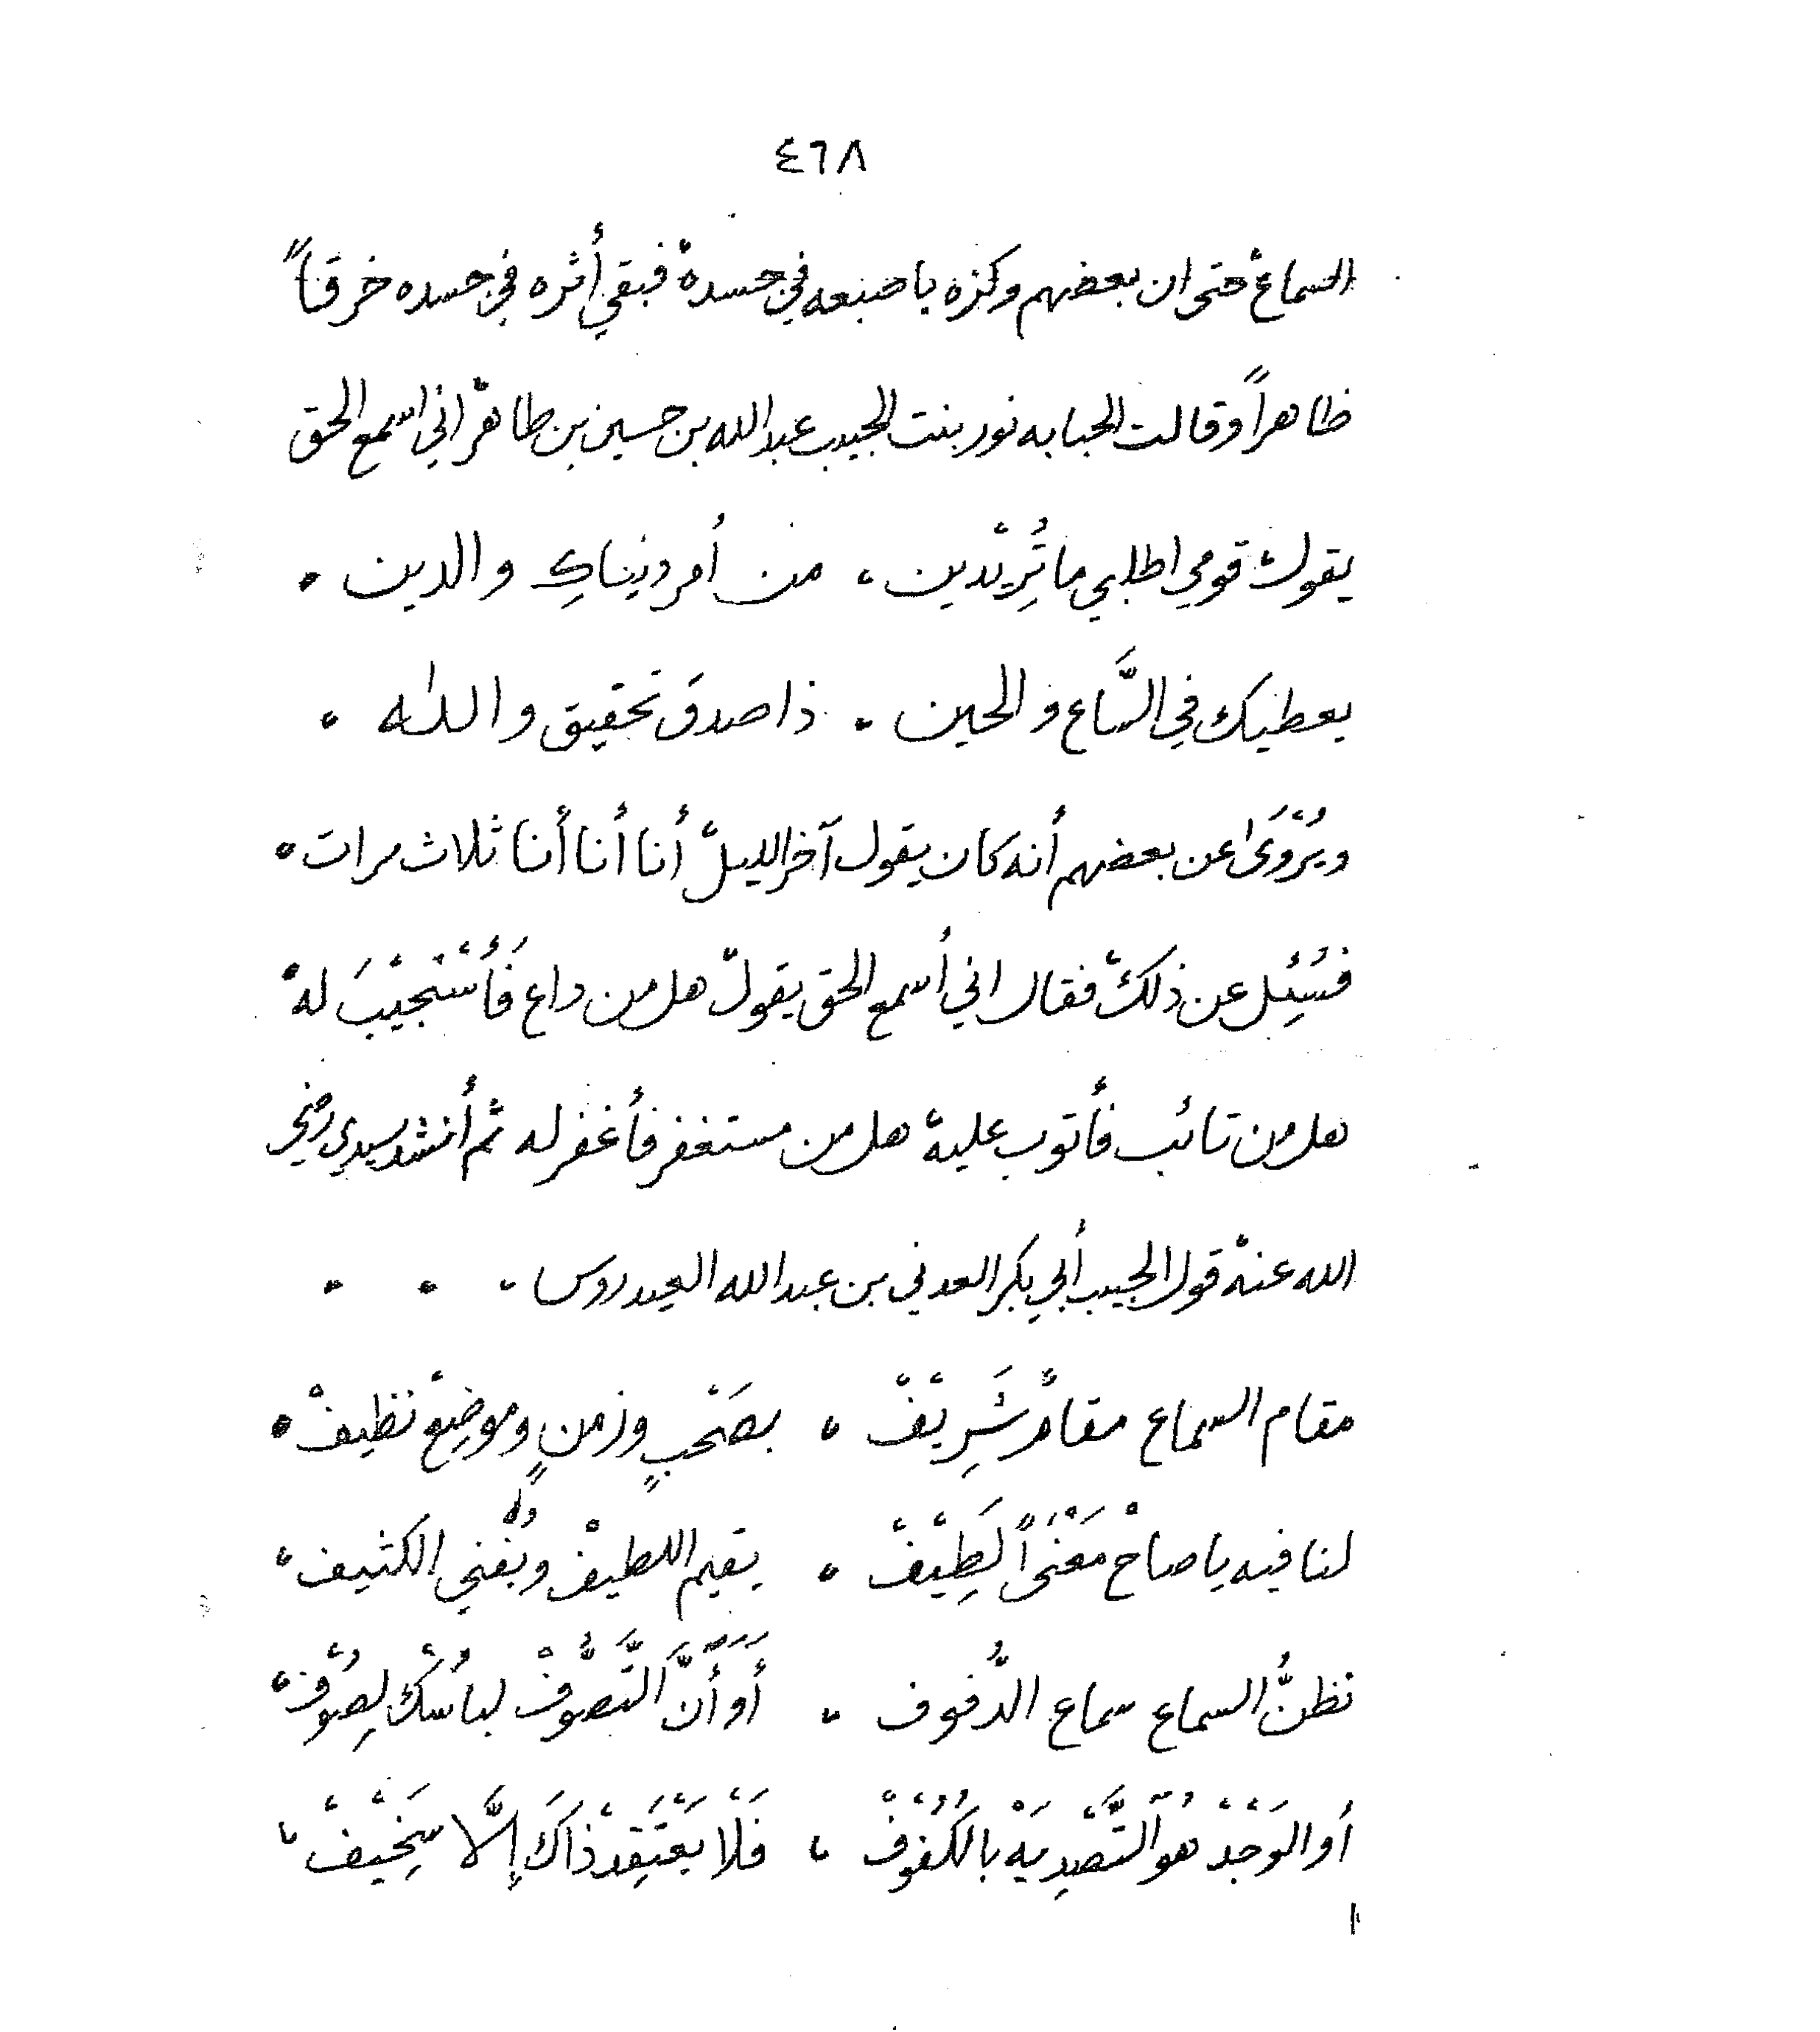 ٤٦٨
السماع حتى ان بعضهم وكزه باصبعه في جسده فبقي أثره في جسده خرقاً
ظاهراً وقالت الحبابه نور بنت الحبيب عبدالله بن حسين بن طاهر اني اسمع الحق
يقول قومي اطلبي ما تُرِيْدين ، من أمر دنياكِ والدين ،
يعطيك في السَّاع والحين ، ذا صدق تحقيق والله ،
ويُرْوَىٰ عن بعضهم أنه كان يقول آخر الليل أنا أنا أنا ثلاث مرات ،
فسُئِل عن ذلك فقال اني أسمع الحق يقول هل من داع فَأَسْتَجِيْبَ له
هل من تائب فأتوب عليه هل من مستغفر فأغفر له ثم أنشد سيدي رضي
الله عنه قول الحبيب أبي بكر العدني بن عبدالله العيدروس ، ، ،
مقام السماع مقامٌ شَرِيْفْ ، بصَحْبٍ وزمنٍ وموضِعْ نظيفْ ،
لنا فيه يا صاحْ مَعْنَىً لَطِيْفْ ، يقيم اللطيفْ ويُفْني الكثيف ،
نظنُّ السماع سماع الدُّفوف ، أَوَ أَنَّ التَّصَوُّفْ لباسُكْ لِصُوْف ،
أو الوَجْدْ هُو التَّصْدِيَهْ بالكُفُوْفْ ، فَلَا يَعْتَقِدْ ذَاكَ إلَّا سَخِيْفْ ،